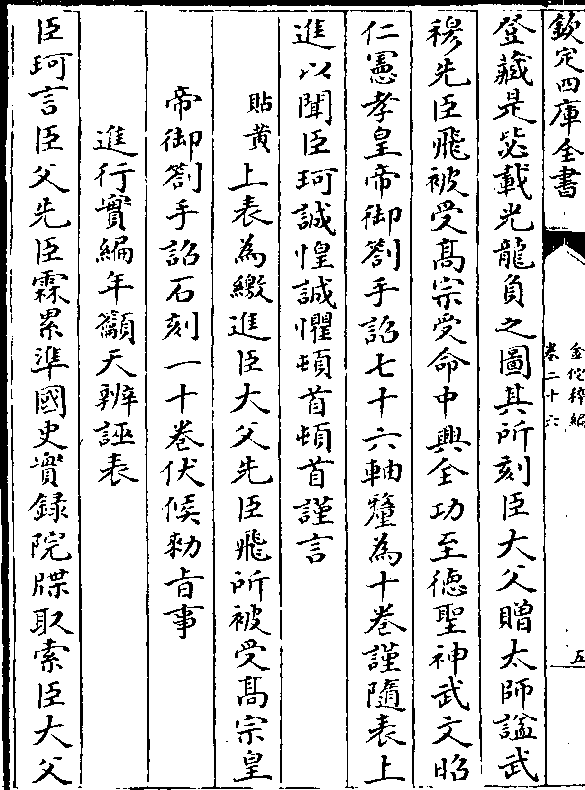 欽定四庫全書
金佗稡編
卷二十六
五
登藏是毖載光龍負之圖其所刻臣大父贈太師諡武
穆先臣飛被受髙宗受命中興全功至徳聖神武文昭
仁憲孝皇帝御劄手詔七十六軸釐為十卷謹隨表上
進以聞臣珂誠惶誠懼頓首頓首謹言
貼黄上表為繳進臣大父先臣飛所被受髙宗皇
帝御劄手詔石刻一十卷伏候勅旨事
進行實編年籲天辨誣表
臣珂言臣父先臣霖累準國史實録院牒取索臣大父